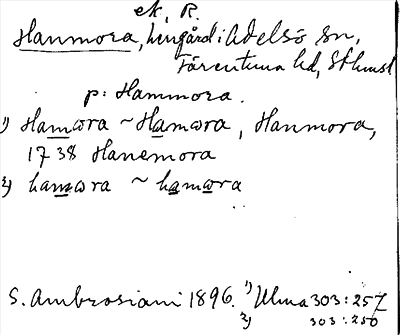 ek, R.
Hanmora, lingård i Adelsö sn,
Färentuna hd, Sthmsl
p: Hammora.
1) Hamωra ~ Hamωra, Hanmora,
1738 Hanemora
2) hamωra ~ hamωra
S. Ambrosiani 1896. 1) Ulma 303:257
2) 303:250